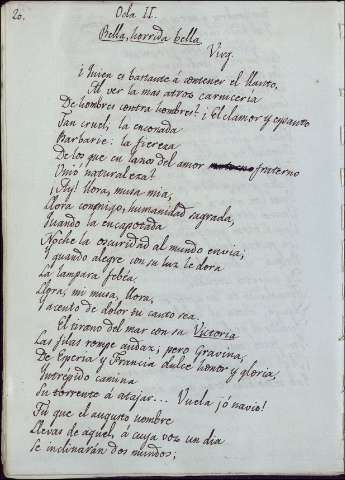 20.
Oda II.
Bella, horrida bella
Virg.
¡Quien es bastante á contener el llanto,
Al ver la mas atroz carniceria
De hombres contra hombres? ¡El clamor y espanto
Tan cruel; la enconada
Barbarie: la fiereza
De los que en lazos del amor fraterno
Unió naturaleza?
¡Ay! llora, musa mia;
Llora conmigo, humanidad sagrada,
Quando la encapotada
Noche la oscuridad al mundo envia;
Y quando alegre con su luz le dora
La lampara febéa.
Llora, mi musa, llora;
Y acento de dolor tu canto sea.
El tirano del mar con su Victoria
Las filas rompe audaz; pero Gravina,
De Esperia y Francia dulce honor y gloria,
Intrepido camina
Su torrente á atajar... Vuela ¡ó navio!
Tú que el augusto nombre
Llevas de aquel, á cuya voz un dia
Se inclinarán dos mundos;